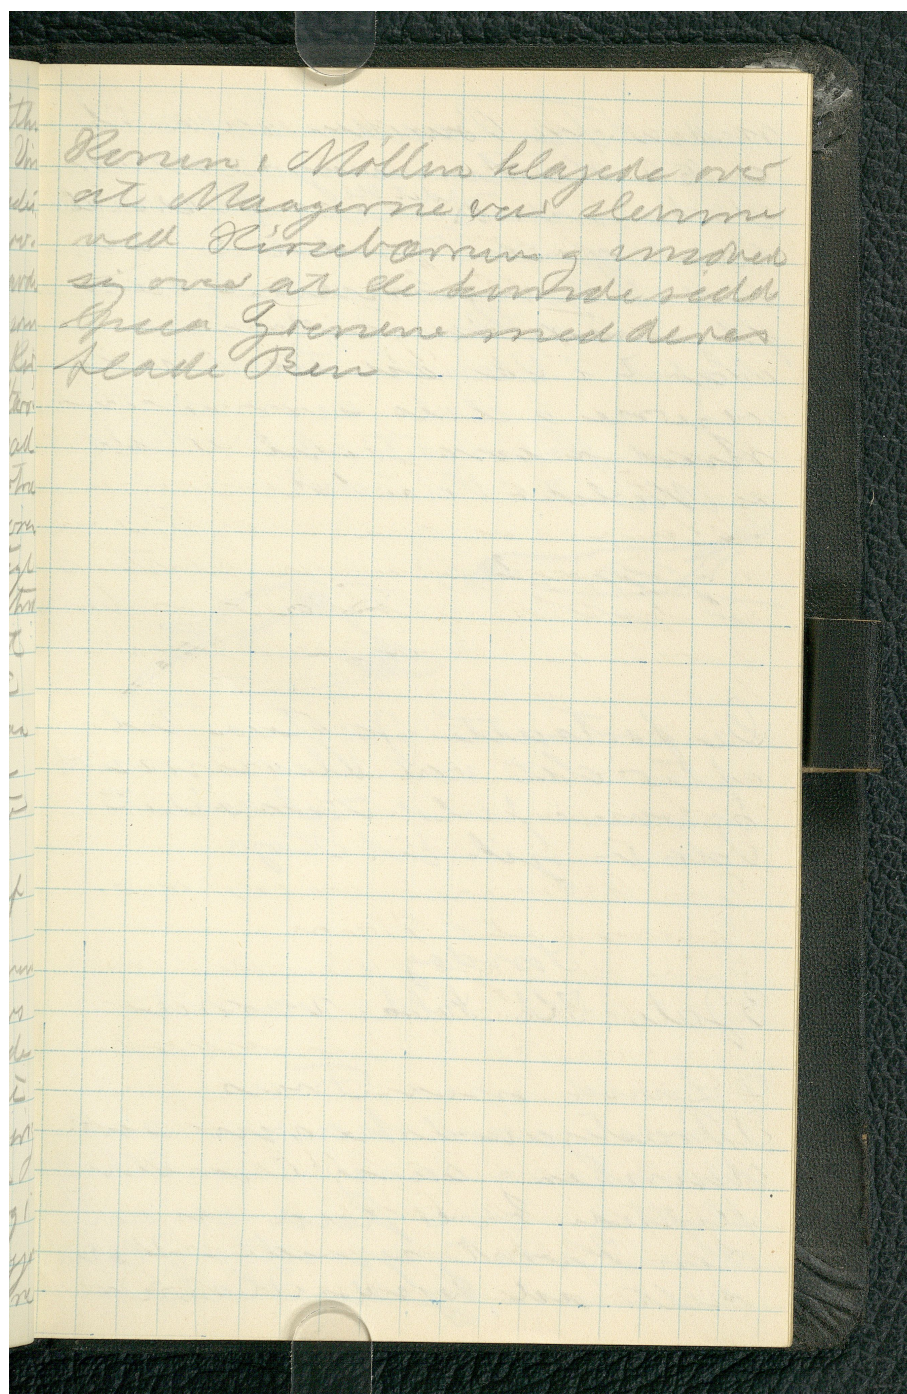 Konen i Møllen klagede over
at Maagerne var slemme
ved Kirsebærrene og undred
sig over at de kunde sidde
paa Grenene med deres
flade Ben